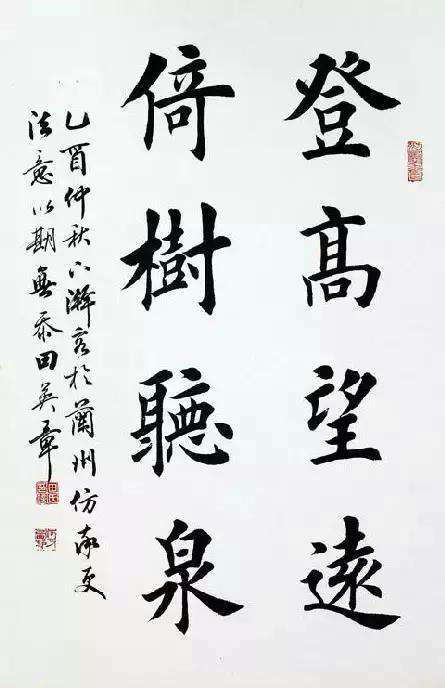 登高望遠
倚樹聽泉
乙酉仲秋下澣客於蘭州仿唐
法意以期無忝田英章